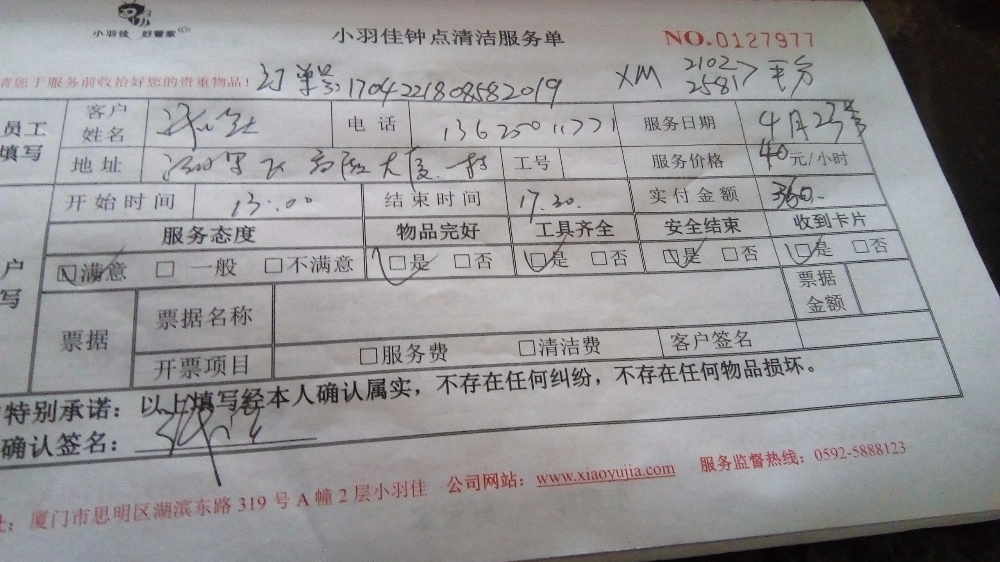 小羽佳 好管家
小羽佳钟点清洁服务单
NO.0127977
请您于服务前收拾好您的贵重物品!
订单号:1704221808582019
XM 21027 25817 平分
员工填写
客户姓名
电话 13625001771
服务日期 4月23号
地址
工号
服务价格 40元/小时
开始时间 13:00
结束时间 17.30
实付金额 360.
服务态度 物品完好 工具齐全 安全结束 收到卡片
户写
□满意 □一般 □不满意 □是 □否 □是 □否 □是 □否 □是 □否
票据
票据名称
票据金额
开票项目 □服务费 □清洁费 客户签名
特别承诺:以上填写经本人确认属实,不存在任何纠纷,不存在任何物品损坏。
确认签名:
址:厦门市思明区湖滨东路319号A幢2层小羽佳 公司网站:www.xiaoyujia.com 服务监督热线:0592-5888123